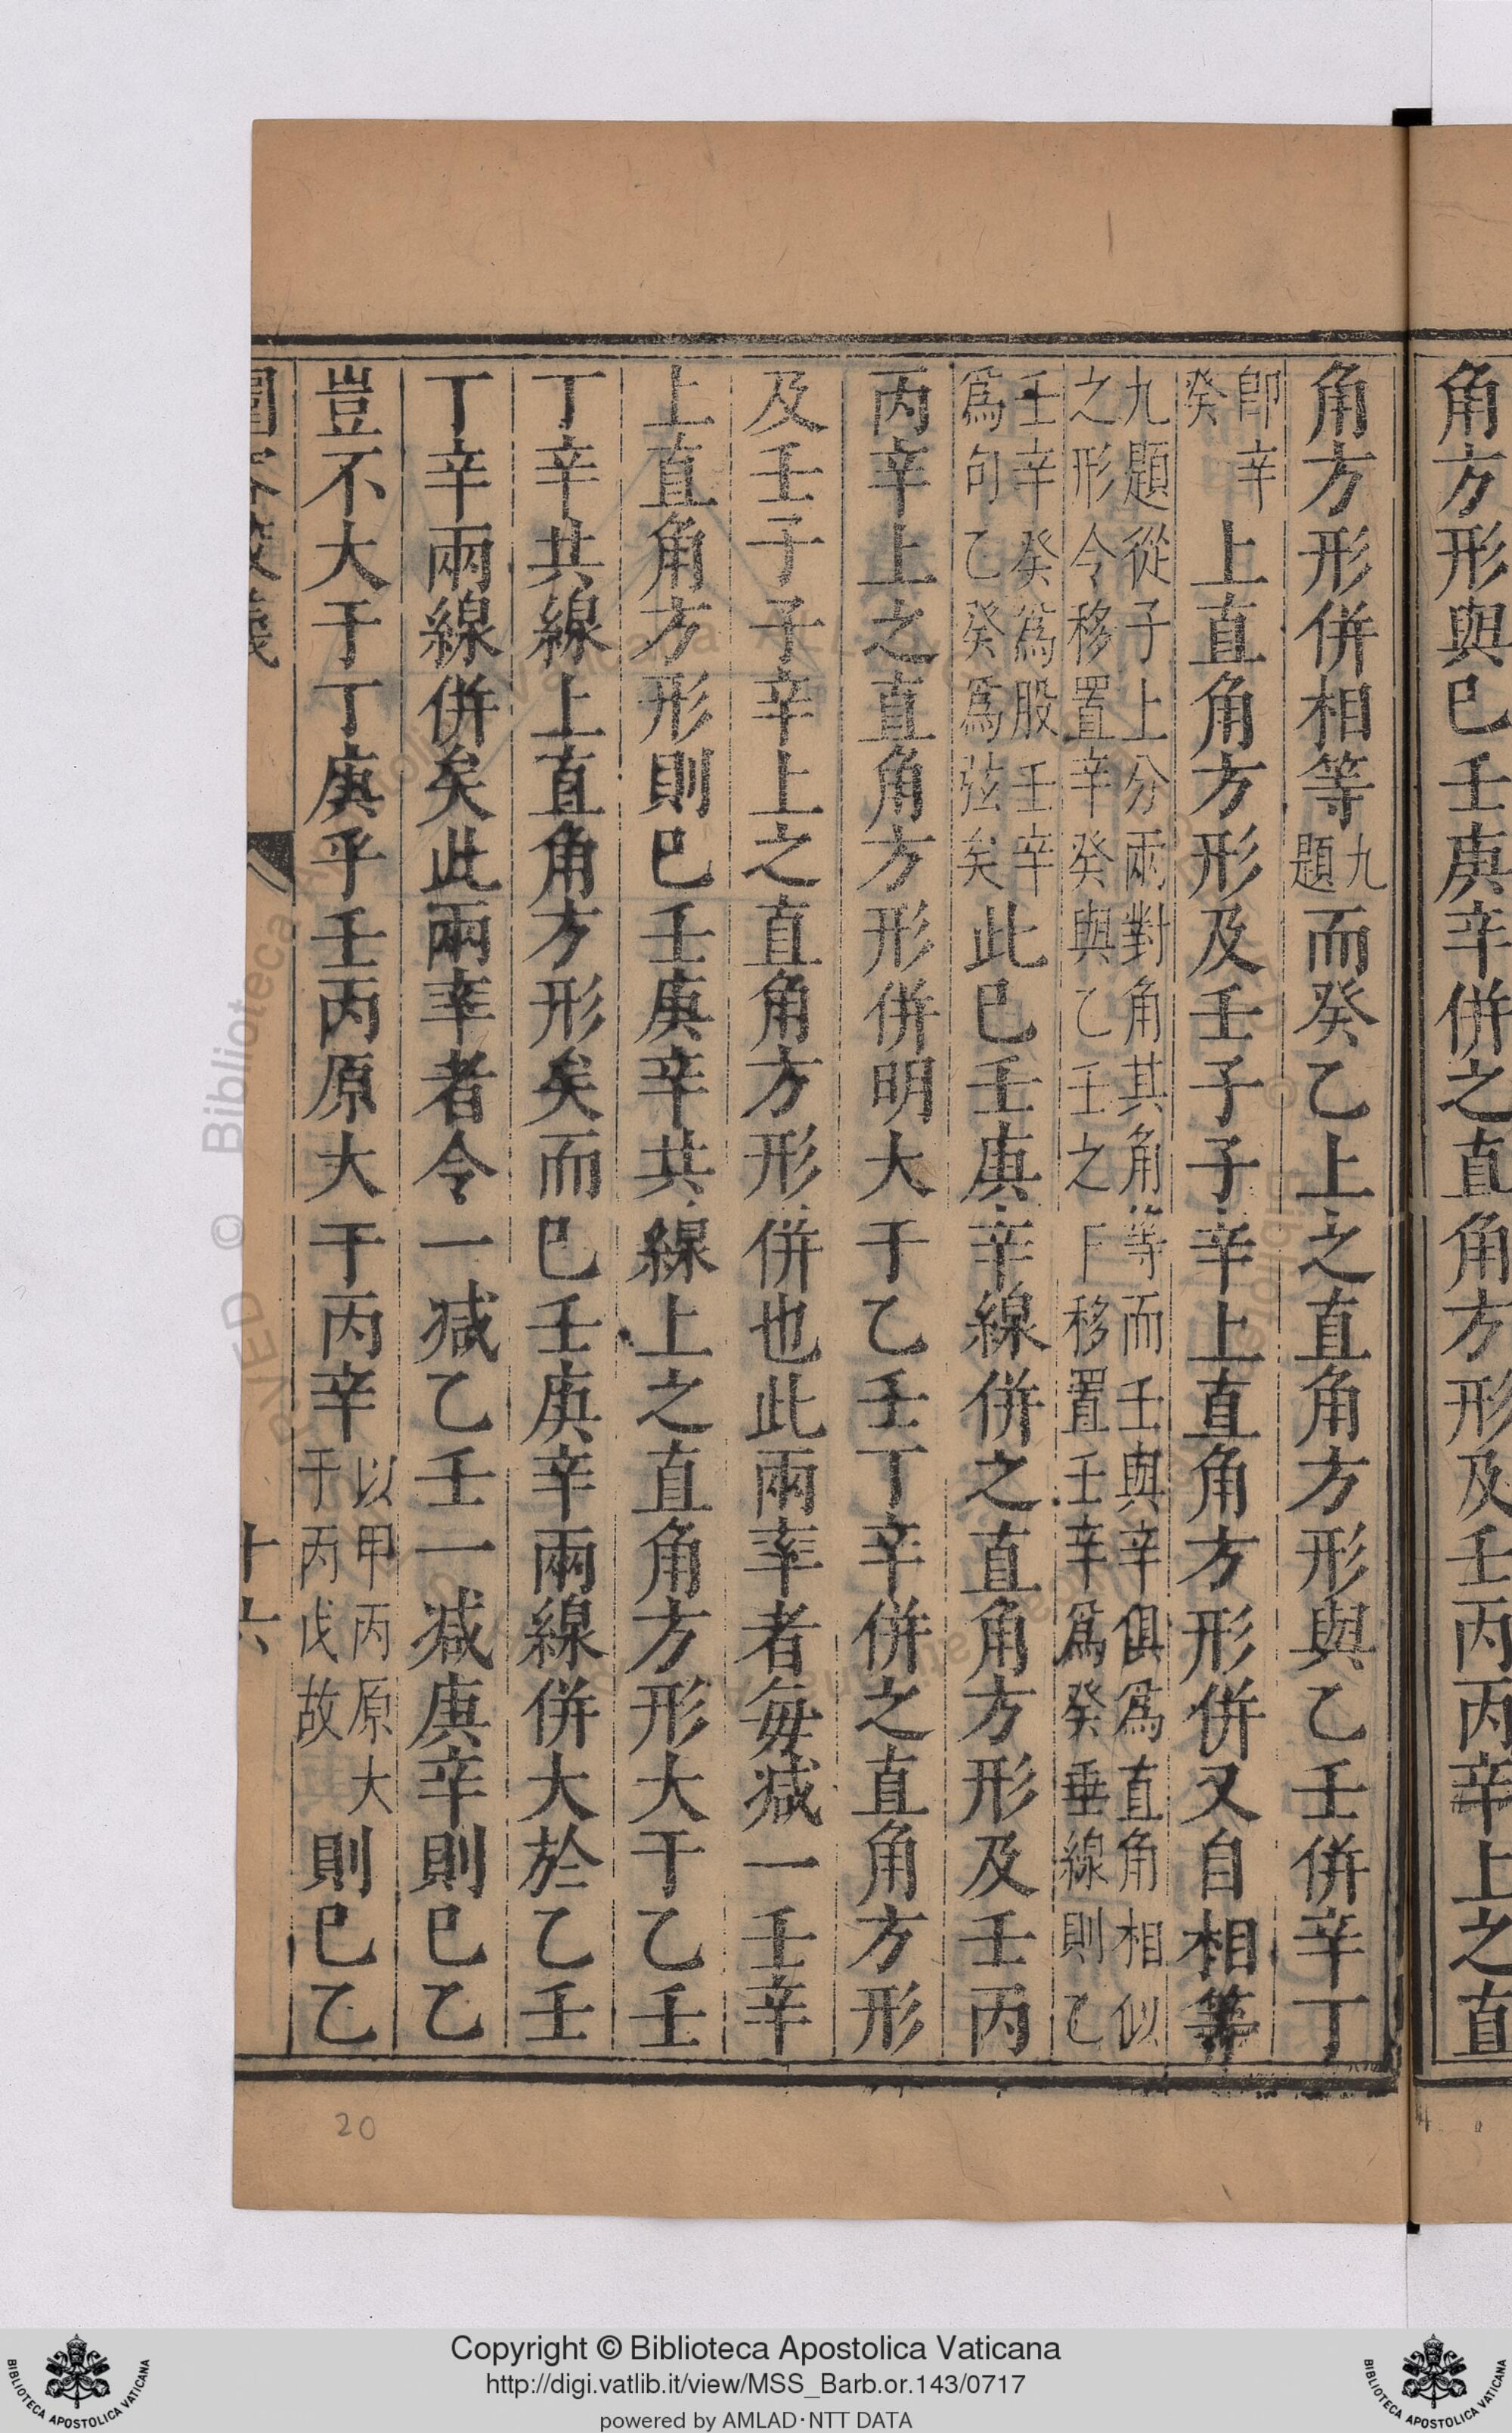 角方形與巳壬庚辛併之直角方形及壬丙丙辛上之直
角方形併相等九題而癸乙上之直角方形與乙壬併辛丁
即辛癸上直角方形及壬子子辛上直角方形併又自相等
九題從子上分兩對角其角等而壬與辛俱爲直角相似
之形令移置辛癸與乙壬之下移置壬辛爲癸垂線則乙
壬辛癸爲股壬辛
爲句乙癸爲弦矣此巳壬庚辛線併之直角方形及壬丙
丙辛上之直角方形併明大于乙壬丁辛併之直角方形
及壬子子辛上之直角方形併也此兩率者每减一壬辛
上直角方形則巳壬庚辛共線上之直角方形大于乙壬
丁辛共線上直角方形矣而巳壬庚辛兩線併大於乙壬
丁辛兩線併矣此兩率者令一减乙壬一减庚辛則巳乙
豈不大于丁庚乎壬丙原大于丙辛以甲丙原大于丙戊故則巳乙
圜容較義
十六
20
Copyright © Biblioteca Apostolica Vaticana
http://digi.vatlib.it/view/MSS_Barb.or.143/0717
powered by AMLAD·NTT DATA
BIBLIOTECA APOSTOLICA VATICANA
BIBLIOTECA APOSTOLICA VATICANA